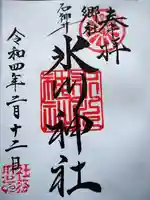 奉拝
郷社
石神井
氷川神社
令和四年二月十二日